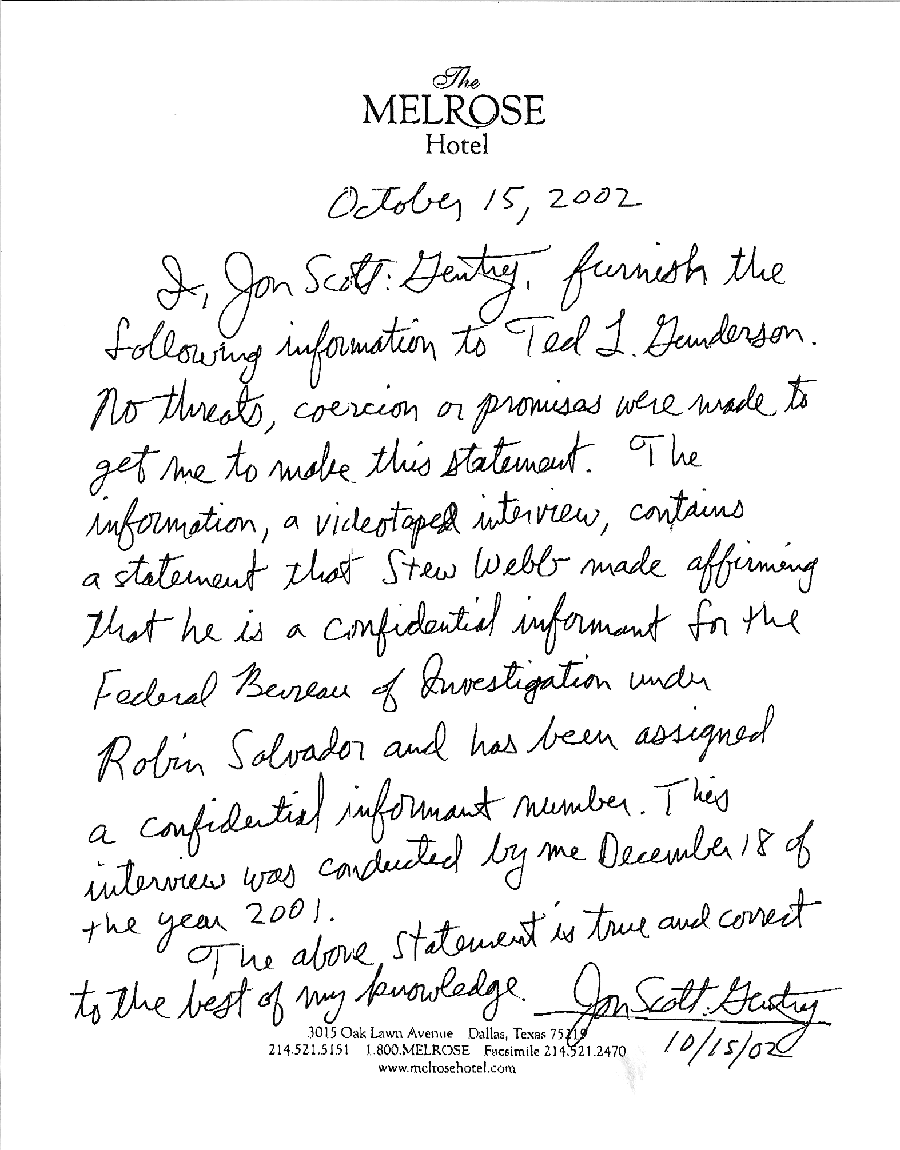 The
MELROSE
Hotel
October 15, 2002
I, Jon Scott: Gentry, furnish the
following information to Ted L. Gunderson.
No threats, coercion or promises were made to
get me to make this statement. The
information, a videotaped interview, contains
a statement that Stew Webb made affirming
that he is a confidential informant for the
Federal Bureau of Investigation under
Robin Salvador and has been assigned
a confidential informant number. This
interview was conducted by me December 18 of
the year 2001.
The above statement is true and correct
to the best of my knowledge. Jon Scott: Gentry
10/15/02
3015 Oak Lawn Avenue Dallas, Texas 75219
214.521.5151 1.800.MELROSE Facsimile 214.521.2470
www.melrosehotel.com